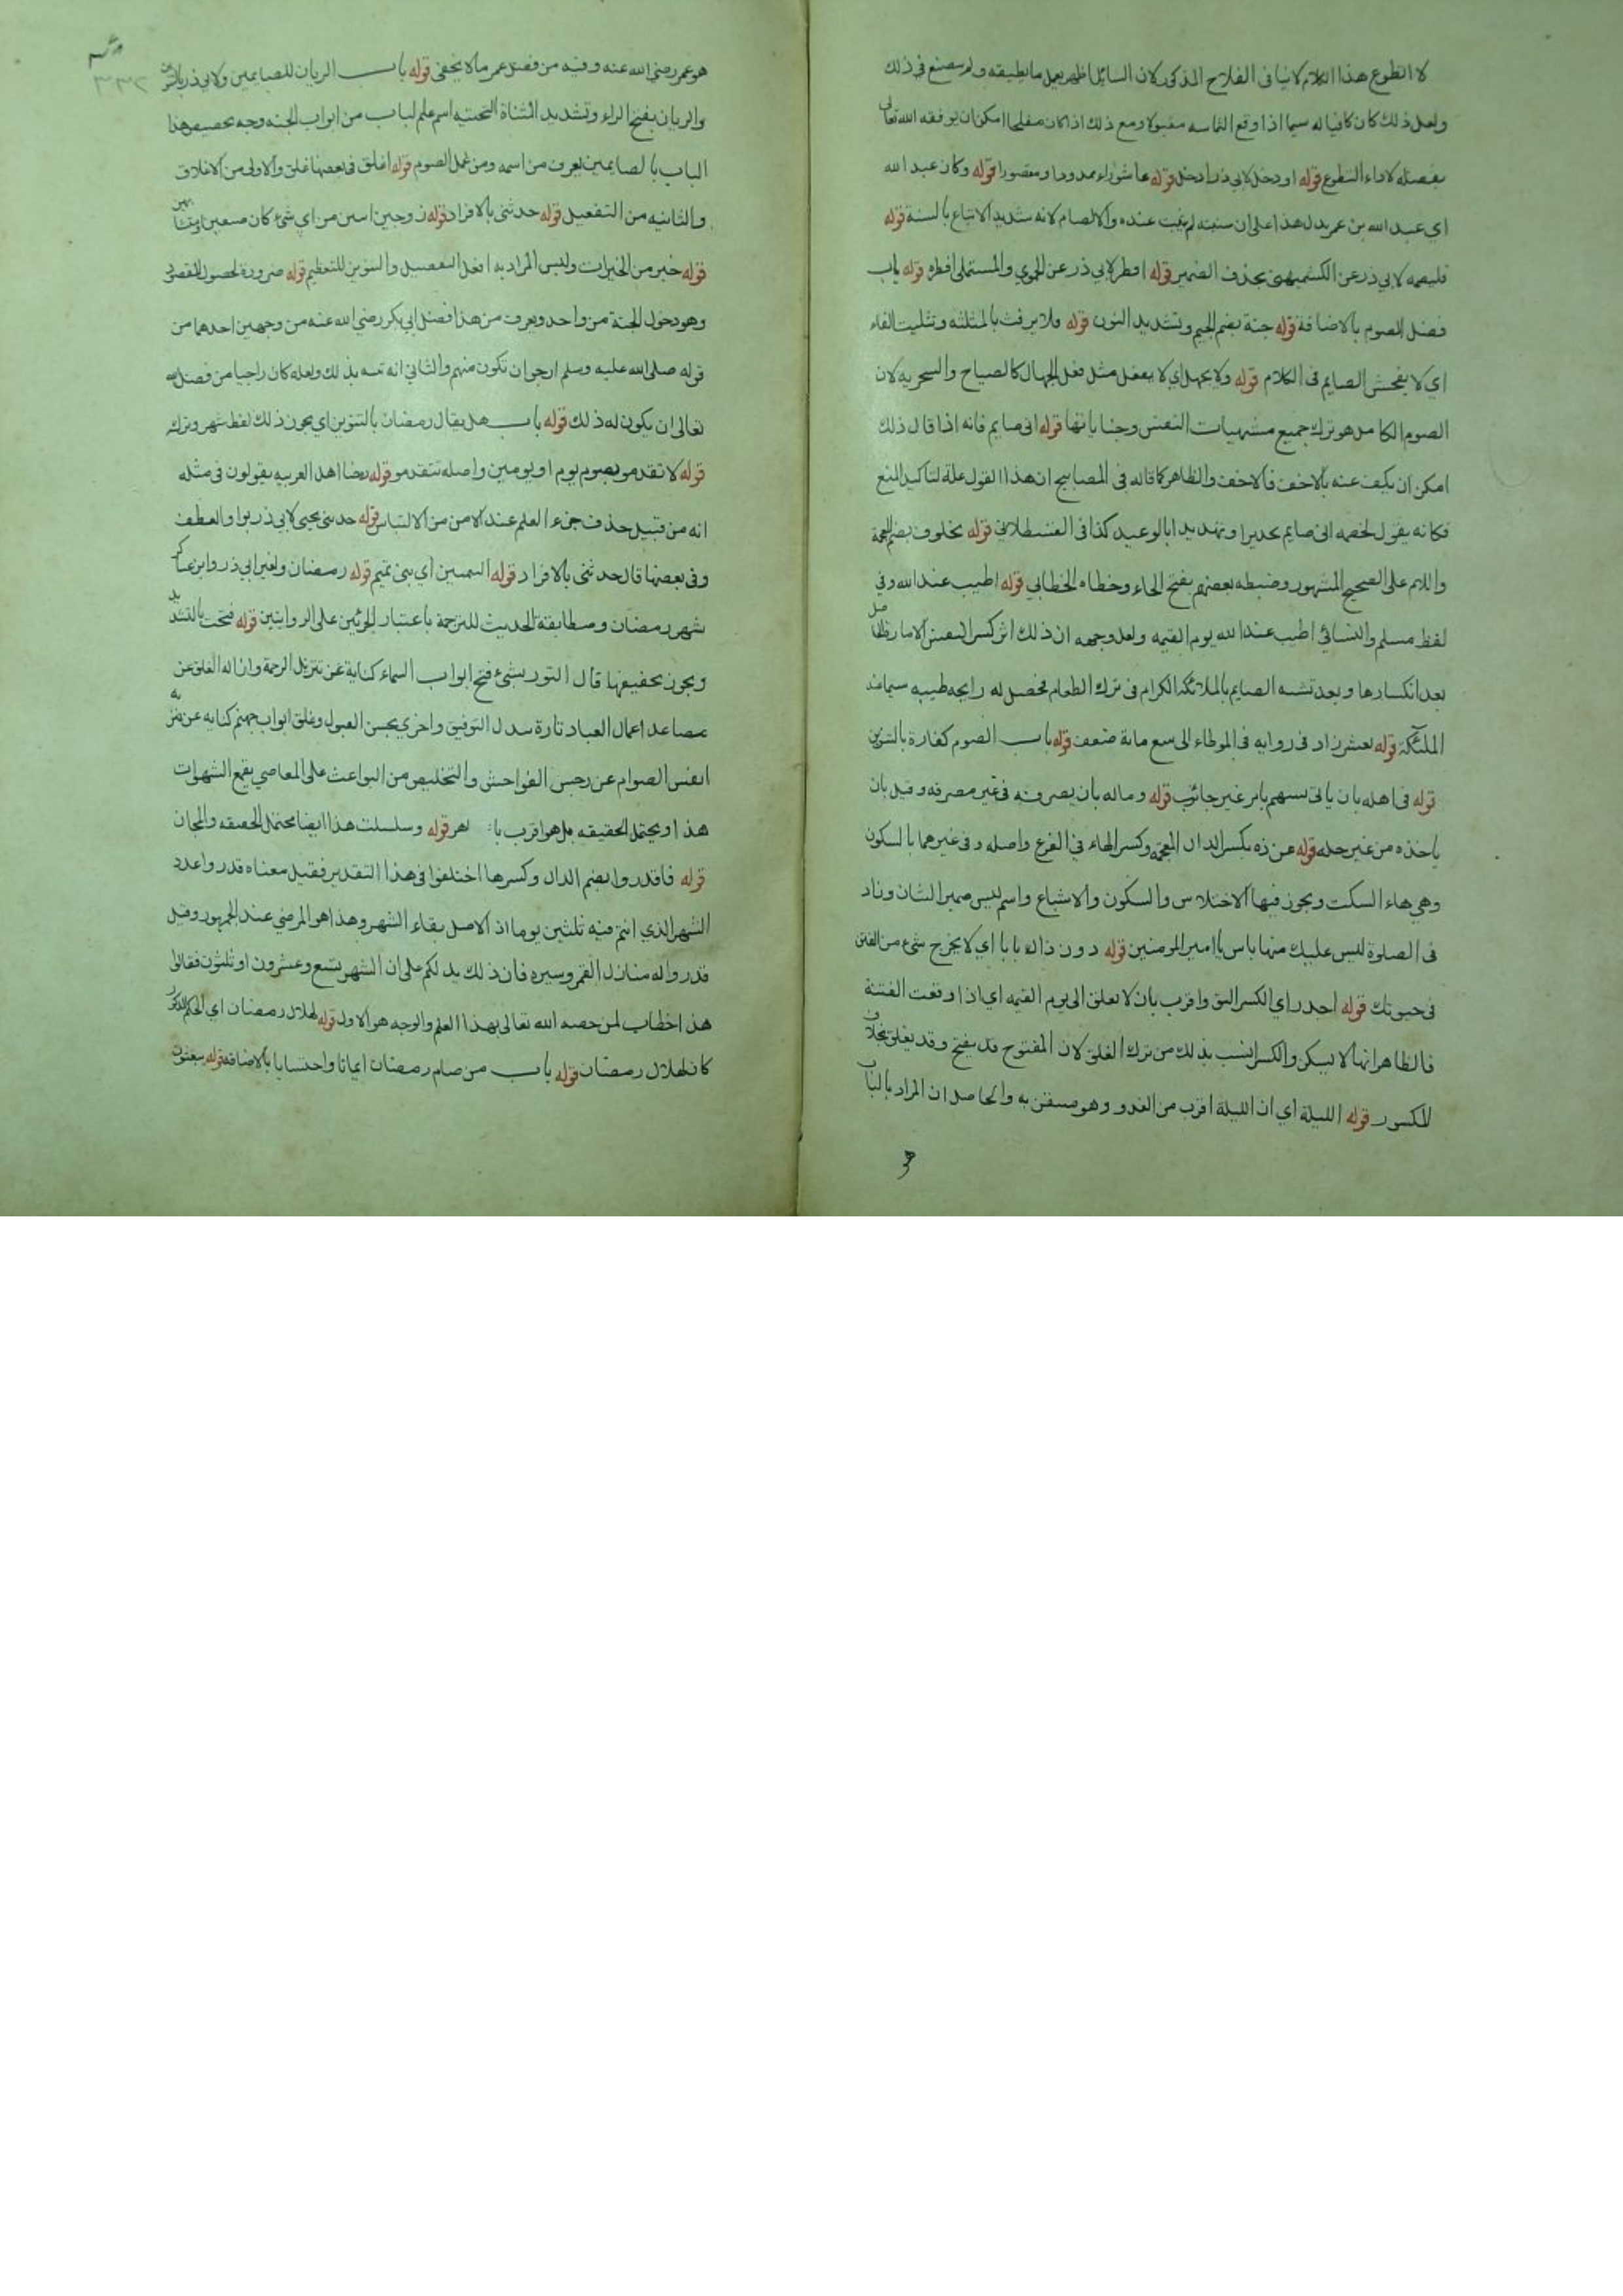 لا اتطوع هذا الكلام لا ينافى الفلاح المذكور لان السائل اظهر بعمل ما يطيقه ولم يصنع في ذلك
ولعل ذلك كان كافيا له سيما اذا وقع التماسه مقبولا ومع ذلك اذا كان مفلحا امكن ان يوفقه الله تعالى
بفضله لاداء التطوع قوله او دخل لابي ذر ادخل قوله عاشوراء ممدودا ومقصورا قوله وكان عبد الله
اي عبد الله بن عمر يدل هذا على ان سنيته لم يثبت عنده والا لصام لانه شديد الاتباع بالسنة قوله
فليصمه لابي ذر عن الكشميهنى بحذف الضمير قوله افطر لابي ذر عن الحموي والمستملى افطره قوله باب
فضل الصوم بالاضافة قوله جنة بضم الجيم وتشديد النون قوله فلا يرفث بالمثلثة وتثليث الفاء
اي لا يفحش الصايم فى الكلام قوله ولا يجهل اي لا يفعل مثل فعل الجهال كالصياح والسخرية لان
الصوم الكامل هو ترك جميع مشتهيات النفس وجناياتها قوله انى صايم فانه اذا قال ذلك
امكن ان يكف عنه بالاخف فالاخف والظاهر كما قاله فى المصابيح ان هذا القول علة لتاكيد المنع
فكانه يقول لخصمه انى صايم تحذيرا وتهديدا بالوعيد كذا فى القسطلانى قوله لخلوف بضم المعجمة
واللام على الصحيح المشهور وضبطه بعضهم بفتح الخاء وخطاه الخطابي قوله اطيب عند الله وفي
لفظ مسلم والنسائي اطيب عند الله يوم القيمه ولعل وجهه ان ذلك اثر كسر النفس الامارة
بعد انكسارها وبعد تشبه الصايم بالملائكة الكرام فى ترك الطعام فحصل له رايحة طيبه سيما عند
الملئكة قوله بعشر زاد فى روايه فى الموطاء الى سبع ماية ضعف قوله باب الصوم كفارة بالتنوين
قوله فى اهله بان ياتى بسببهم بامر غير جائز قوله وماله بان يصرفه فى غير مصرفه وقيل بان
ياخذه من غير حله قوله عن ذه بكسر الذال المعجمة وكسر الهاء في الفرع واصله وفى غيرهما بالسكون
وهي هاء السكت ويجوز فيها الاختلاس والسكون والاشباع واسم ليس ضمير الشان وزاد
فى الصلوة ليس عليك منها باس يا امير المومنين قوله دون ذلك بابا اي لا يخرج شيء من الفتن
فى حيوتك قوله اجدر اي الكسر اليق واقرب بان لا يغلق الى يوم القيمه اي اذا وقعت الفتنة
فالظاهر انها لا يسكن والكسر انسب بذلك من ترك الغلق لان المفتوح قد يفتح وقد يغلق بخلاف
المكسور قوله الليلة اي ان الليلة اقرب من الغد وهو متيقن به والحاصل ان المراد بالباب
هو
٣٣٢
هو عمر رضي الله عنه وفيه من فضل عمر ما لا يخفى قوله باب الريان للصايمين ولابي ذر بالتنوين
والريان بفتح الراء وتشديد المثناة التحتيه اسم علم لباب من ابواب الجنه وجه تخصيص هذا
الباب بالصايمين يعرف من اسمه ومن عمل الصوم قوله اغلق فى بعضها غلق والاولى من الاغلاق
والثانيه من التفعيل قوله حدثنى بالافراد قوله زوجين اسين من اي شئ كان صنفين او متشابهين
قوله خير من الخيرات وليس المراد به افعل التفضيل والتنوين للتعظيم قوله ضرورة لحصول المقصود
وهو دخول الجنة من واحد ويعرف من هذا فضل ابي بكر رضي الله عنه من وجهين احدهما من
قوله صلى الله عليه وسلم ارجو ان تكون منهم والثاني انه نسه بذلك ولعله كان راجيا من فضل الله
تعالى ان يكون له ذلك قوله باب هل يقال رمضان بالتنوين اي يجوز ذلك لفظ شهر وترك
قوله لا تقدموا بصوم يوم او يومين واصله تتقدموا قوله رضا اهل العربيه يقولون فى مثله
انه من قبيل حذف جزء العلم عند الامن من الالتباس قوله حدثنى يحيى لابي ذر بواو العطف
وفى بعضها قال حدثنى بالافراد قوله التيميين اي بنى تميم قوله رمضان ولغير ابي ذر وابن عساكر
شهر رمضان ومطابقة الحديث للترجمة باعتبار الجزئين على الروايتين قوله فتحت بالتشديد
ويجوز تخفيفها قال التوربشئ فتح ابواب السماء كناية عن تنزيل الرحمة وازاله الغلق عن
مصاعد اعمال العباد تارة ببذل التوفيق واخرى بحسن القبول وغلق ابواب جهنم كنايه عن تنزيه
انفس الصوام عن رجس الفواحش والتخليص من البواعث على المعاصي بقمع الشهوات
هذا ويحتمل الحقيقه بل هو اقرب قوله وسلسلت هذا ايضا محتمل الحقيقه والمجاز
قوله فاقدروا بضم الدال وكسرها اختلفوا فى هذا التقدير فقيل معناه قدروا عدد
الشهر الذي انتم فيه ثلثين يوما اذ الاصل بقاء الشهر وهذا هو المرضي عند الجمهور وقيل
قدروا له منازل القمر وسيره فان ذلك يدلكم على ان الشهر تسع وعشرون او ثلثون فقالوا
هذا خطاب لمن خصه الله تعالى بهذا العلم والوجه هو الاول قوله لهلال رمضان اي الحكم المذكور
كان لهلال رمضان قوله باب من صام رمضان ايمانا واحتسابا بالاضافة قوله يبعثون